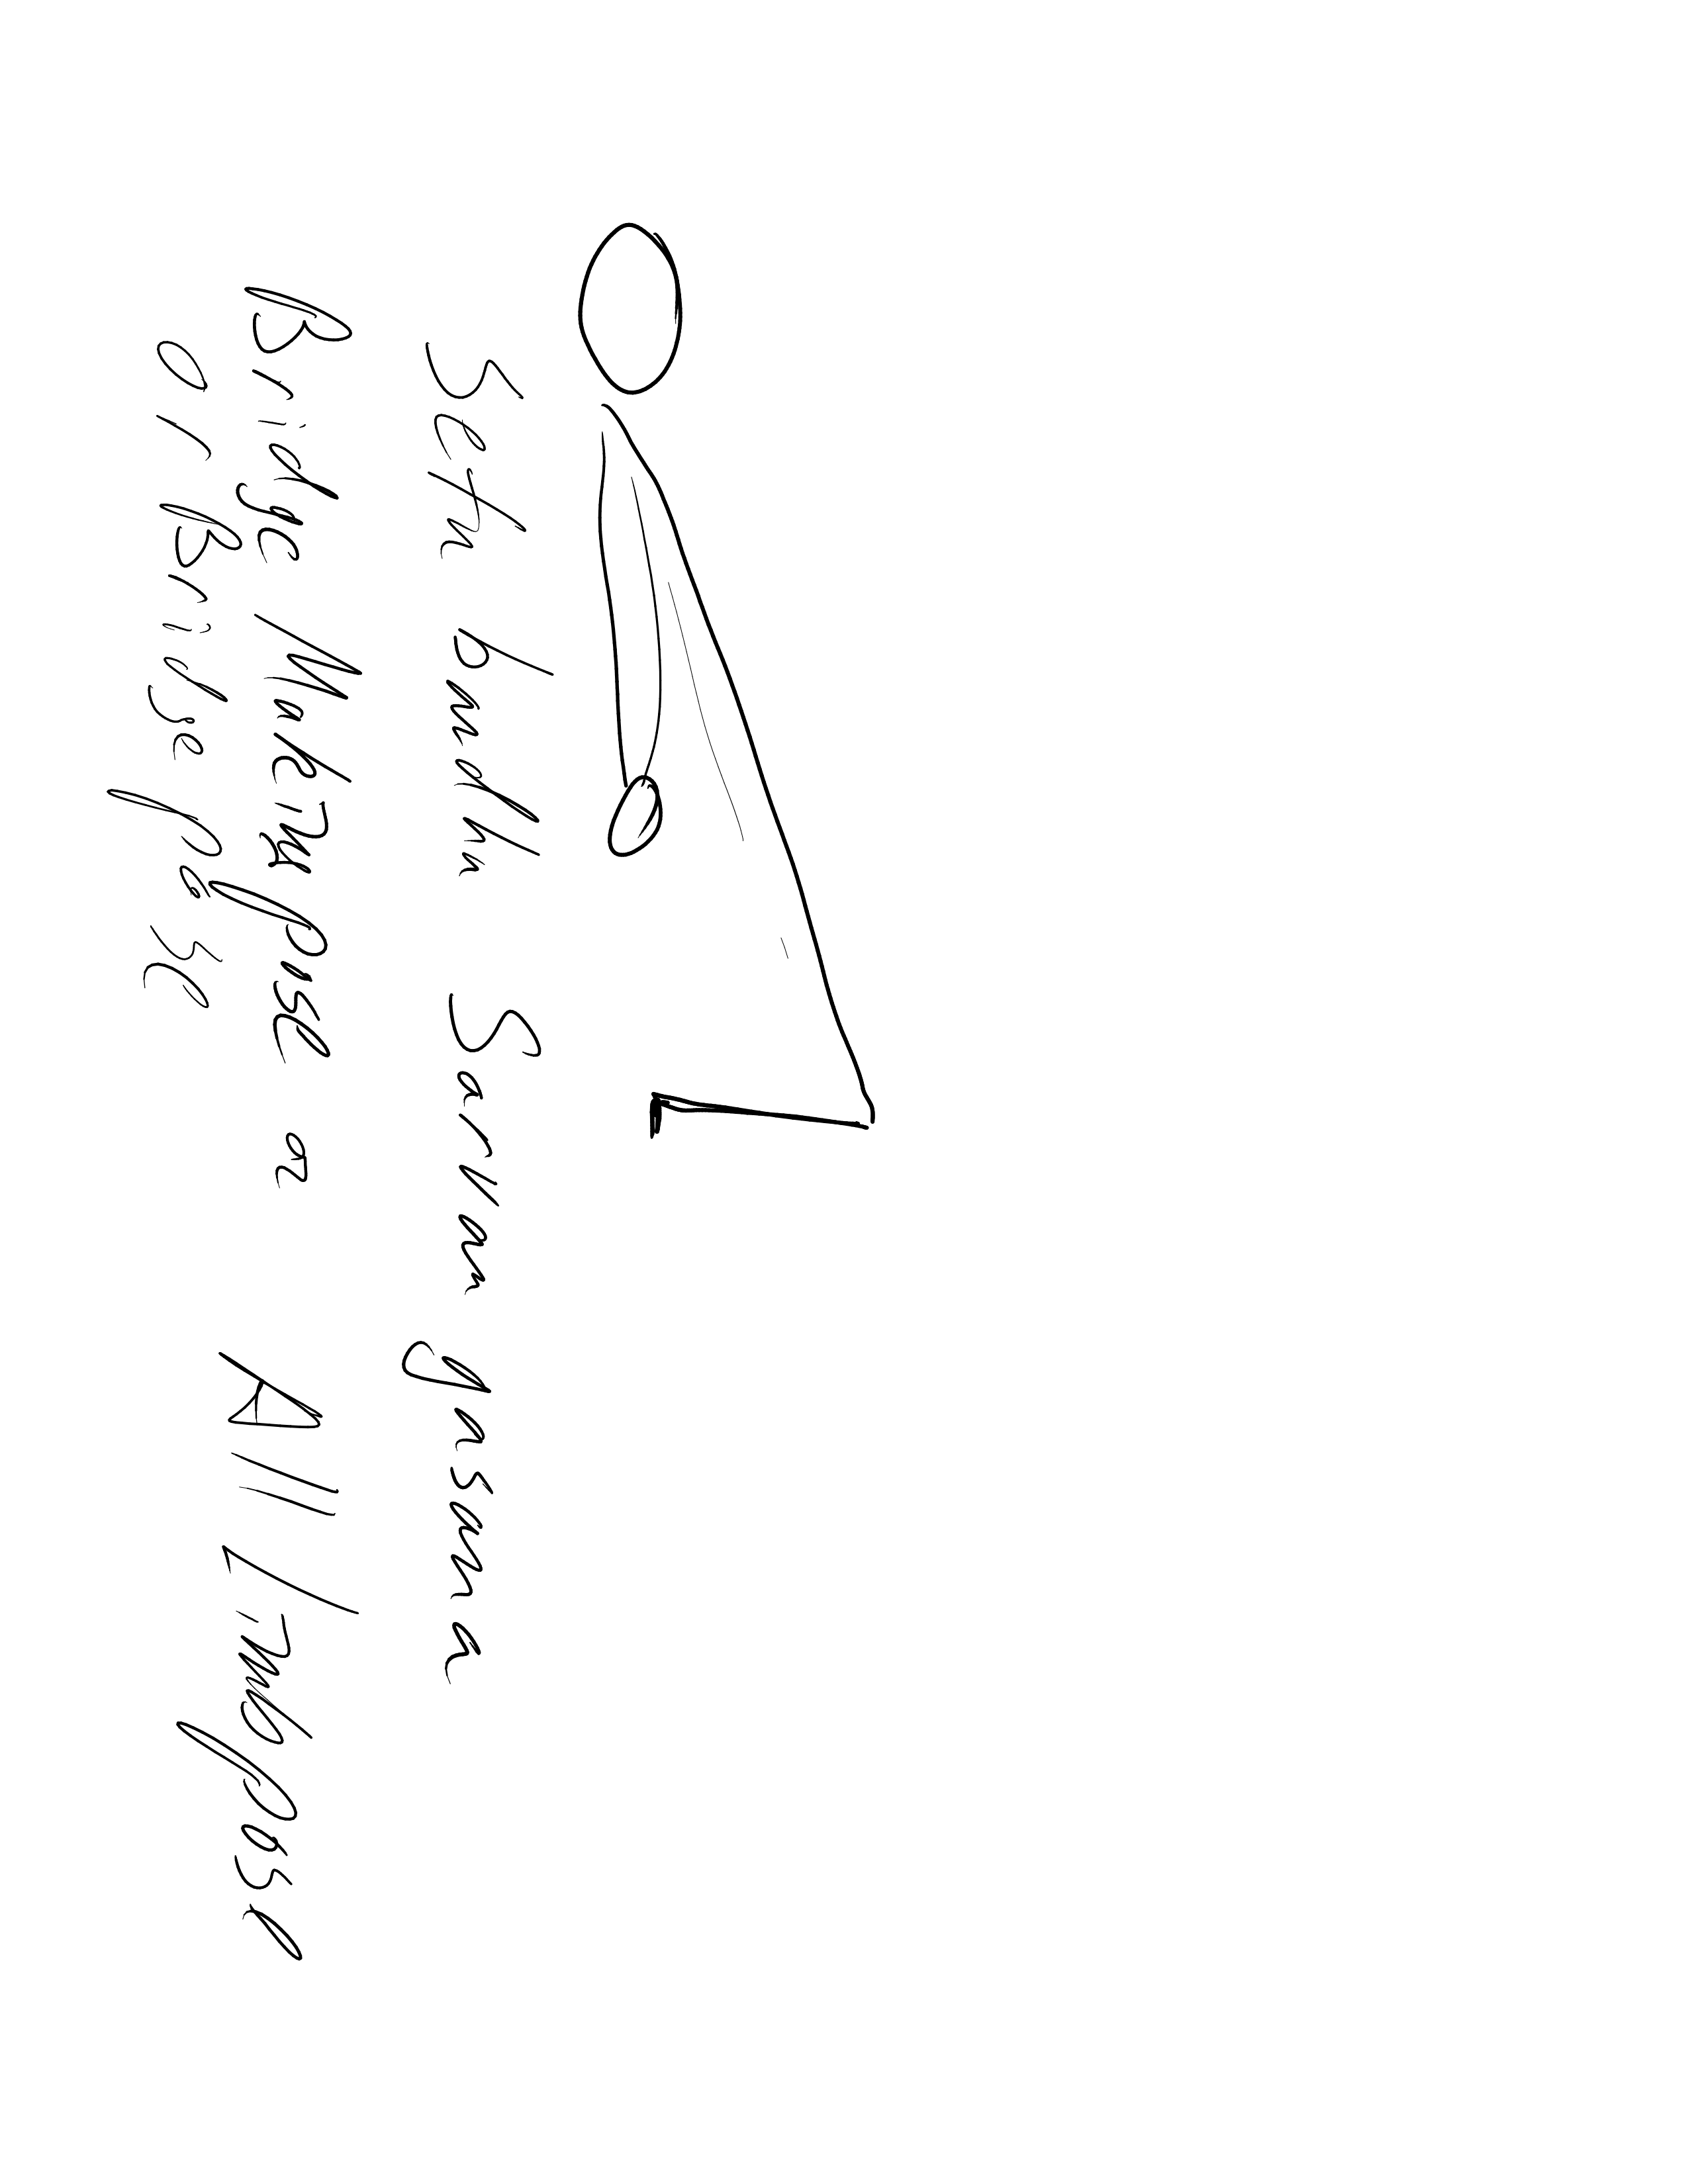 Setu bandha Sarvangasana
Bridge Making Pose or All Limb Pose
or Bridge Pose